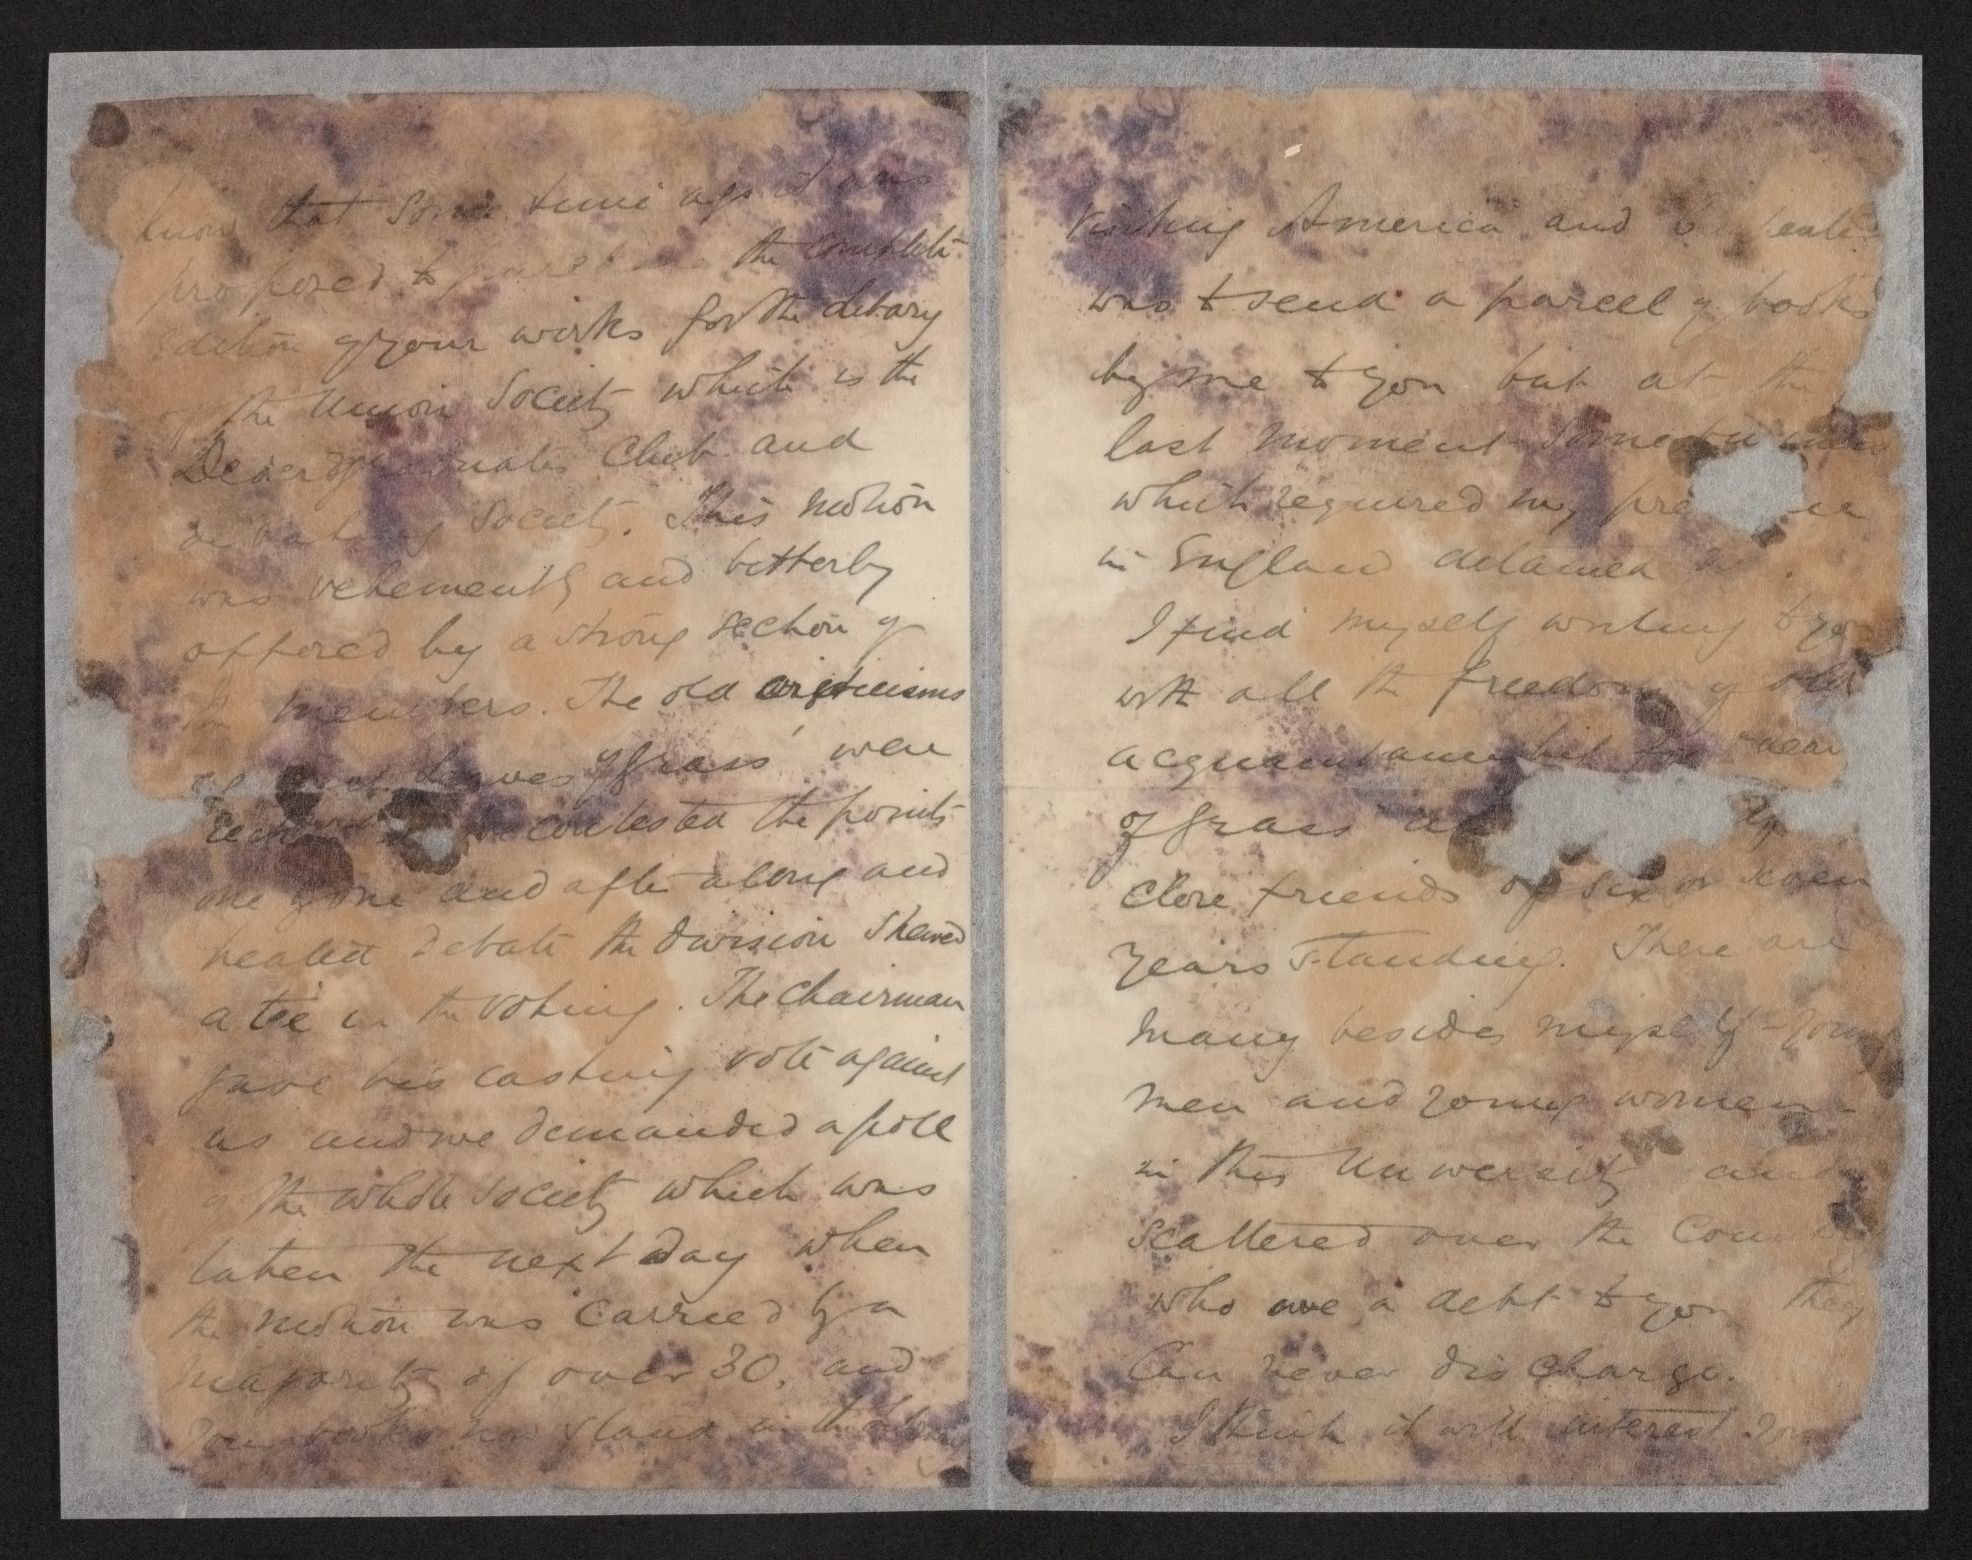 know that some time ago it was
proposed to the complete
edition of your works for the library
of the Union Society which is the
Club and
debating Society. This motion
was vehemently and bitterly
opposed by a strong section of
the members. The old criticisms
Leaves of Grass' were
contested the points
one by one and after a long and
heated debate the division shewed
a tie in the voting. The Chairman
gave his casting vote against
us and we demanded a poll
of the whole society which was
taken the next day when
the motion was carried by a
majority of over 30, and
your books now stand in the library
visiting America and
was to send a parcel of books
by me to you but at the
last moment some
which required my
in England detained
I find myself writing to you
with all the freedom of old
acquaintance but
of Grass
close friends of six or seven
years standing. There are
many besides myself - young
men and young women -
in this University and
scattered over the
who owe a debt to you they
can never discharge.
I think it will interest you